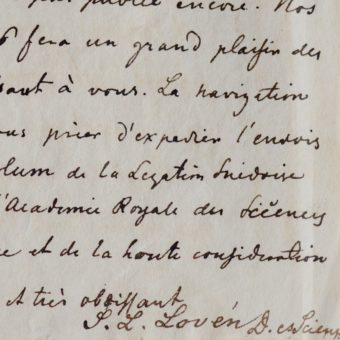 publié encore. Nos
fera un grand plaisir des
à vous. La navigation
prier d'expedier l'envois
de la Legation Suédoise
l'Academie Royale des Sciences
et de la haute consideration
et très obéissant
S. L. Lovén D. es Scienc